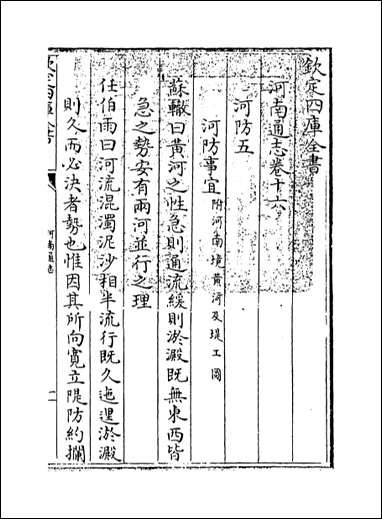 欽定四庫全書
河南通志卷十六
河防五
河防事宜附河南境黄河及堤工圖
蘇轍曰黃河之性急則通流緩則淤澱既無東西皆
急之勢安有兩河並行之理
任伯雨曰河流混濁泥沙相半流行既久迤邐淤澱
則久而必決者勢也惟因其所向寛立隄防約攔
河南通志